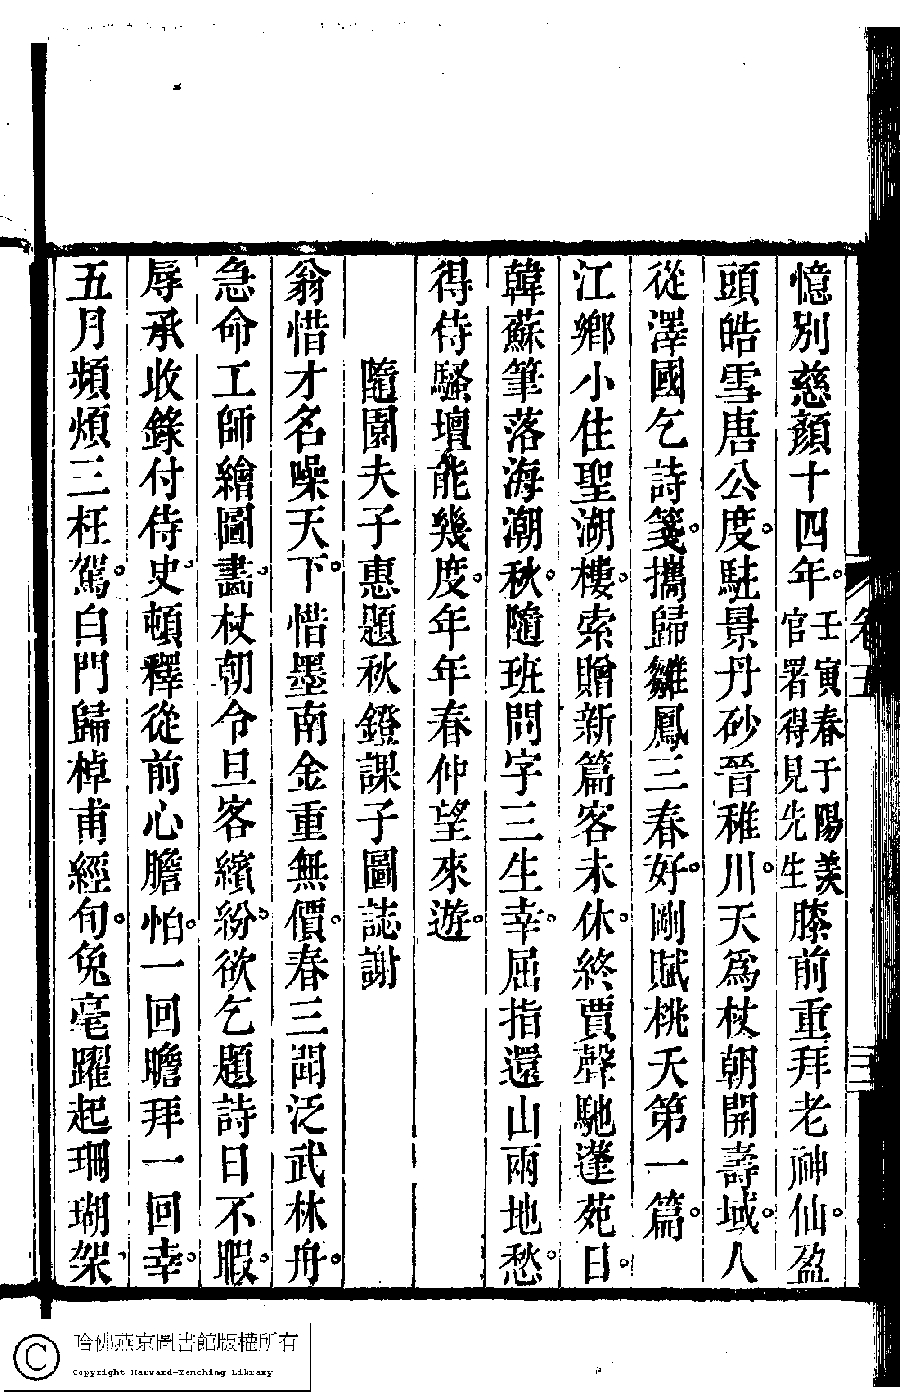 憶別慈顏十四年。壬寅春于陽羨官署得見先生膝前重拜老神仙。盈
頭皓雪唐公度。駐景丹砂晉稚川。天爲杖朝開壽域。人
從澤國乞詩箋。攜歸雛鳳三春好。剛賦桃夭第一篇。
江鄉小住聖湖樓。索贈新篇客未休。終賈聲馳蓬苑日。
韓蘇筆落海潮秋。隨班問字三生幸。屈指還山兩地愁。
得侍騷壇能幾度。年年春仲望來遊。
隨園夫子惠題秋鐙課子圖誌謝
翁惜才名噪天下。惜墨南金重無價。春三聞泛武林舟。
急命工師繪圖畫。杖朝令旦客繽紛。欲乞題詩日不暇。
辱承收錄付侍史。頓釋從前心膽怕。一回瞻拜一回幸。
五月頻煩三枉駕。白門歸棹甫經旬。兔毫躍起珊瑚架、
卷五
三
哈佛燕京圖書館版權所有
Copyright Harvard-Yenching Library